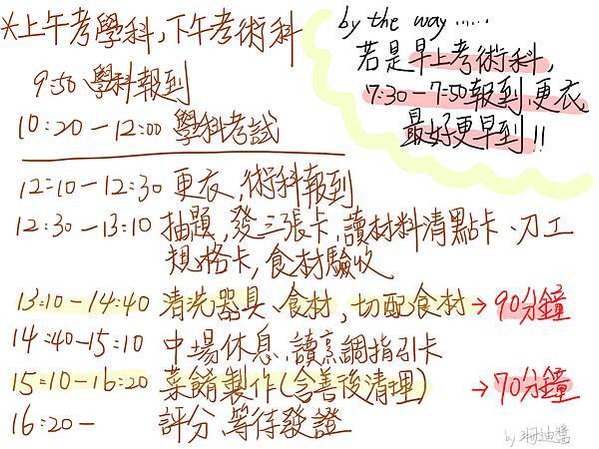 ※上午考學科,下午考術科
9:50 學科報到
10:20-12:00 學科考試
by the way......
若是早上考術科,
7:30-7:50報到、更衣
最好更早到!!
12:10-12:30 更衣,術科報到
12:30-13:10 抽題、發三張卡、讀材料清點卡、刀工
規格卡,食材驗收
13:10-14:40 清洗器具、食材,切配食材→90分鐘
14:40-15:10 中場休息、讀烹調指引卡
15:10-16:20 菜餚製作(含善後清理) →70分鐘
16:20- 評分、等待發證
by 迪醬